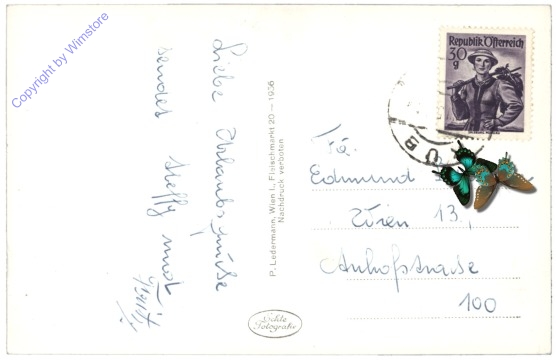 Copyright by Wimstore
Liebe Urlaubsgrüße
sendet Steffy und
Fritz
P. Ledermann, Wien I., Fleischmarkt 20 — 1956
Nachdruck verboten
Echte
Fotografie
Republik Österreich
30
g
BU
Fa.
Edmund
Wien 13,
Auhofstrasse
100